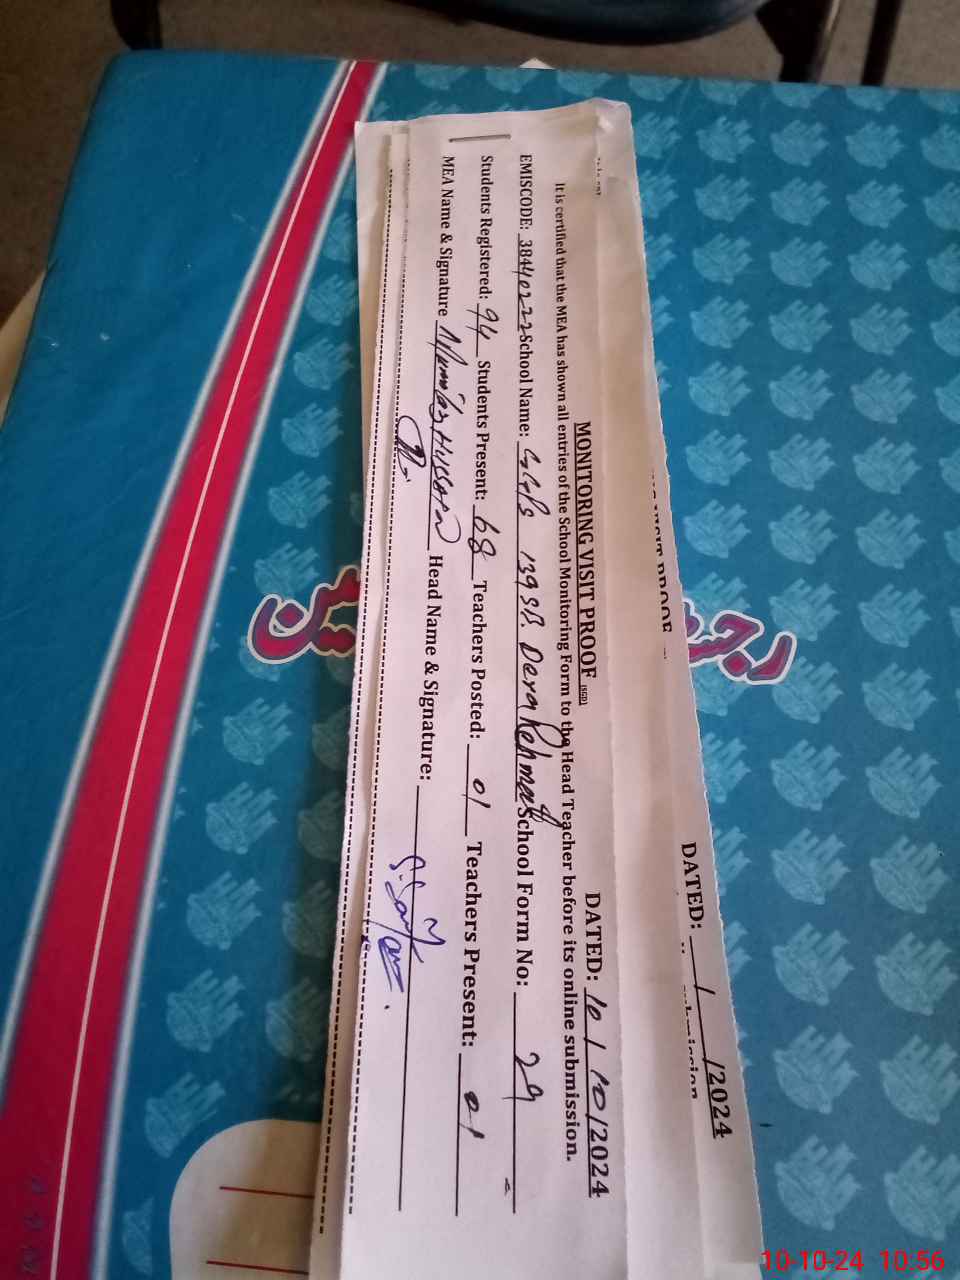 DATED: ___/___/2024
MONITORING VISIT PROOF (SGD) DATED: 10/10/2024
It is certified that the MEA has shown all entries of the School Monitoring Form to the Head Teacher before its online submission.
EMISCODE: 38440222 School Name: GGPS 139 SB Dera Rehmat School Form No: 29
Students Registered: 94 Students Present: 68 Teachers Posted: 01 Teachers Present: 01
MEA Name & Signature Mumtaz Hussain Head Name & Signature:
10-10-24 10:56